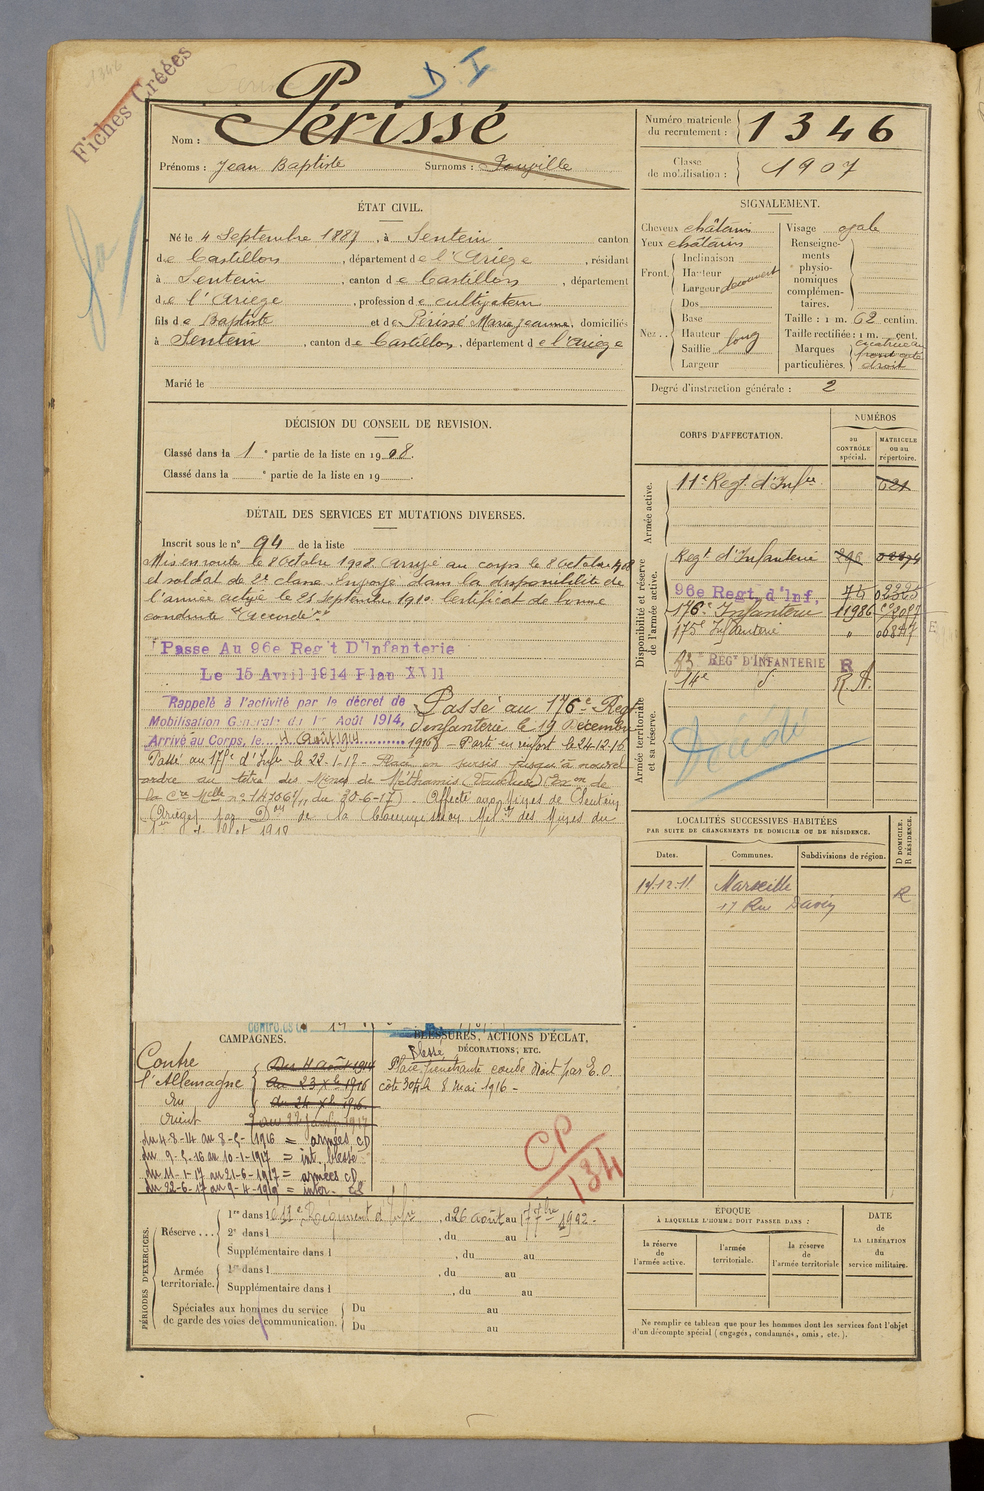 1346
Fiches Créées
D I
Nom : Périssé
Prénoms : Jean Baptiste Surnoms :
Numéro matricule
du recrutement : 1346
Classe
de mobilisation : 1907
ÉTAT CIVIL.
Né le 4 Septembre 1887, à Sentein canton
de Castillon, département de l'Ariège, résidant
à Sentein, canton de Castillon, département
de l'Ariège, profession de cultivateur
fils de Baptiste et de Périssé Marie Jeanne, domiciliés
à Sentein, canton de Castillon, département de l'Ariège
Marié le
SIGNALEMENT.
Cheveux châtains
Yeux châtains
Front. Inclinaison
Hauteur
Largeur découvert
Nez.. Dos
Base
Hauteur long
Saillie
Largeur
Visage ovale
Renseigne-
ments
physio-
nomiques
complémen-
taires.
Taille : 1 m. 62 centim.
Taille rectifiée : 1 m. cent.
Marques
particulières. cicatrice au
front côté
droit
Degré d'instruction générale : 2
DÉCISION DU CONSEIL DE REVISION.
Classé dans la 1e partie de la liste en 1908.
Classé dans la e partie de la liste en 19 .
DÉTAIL DES SERVICES ET MUTATIONS DIVERSES.
Inscrit sous le n° 94 de la liste
Mis en route le 8 Octobre 1908. Arrivé au corps le 8 Octobre 1908
et soldat de 2e classe. Envoyé dans la disponibilité de
l'armée active le 25 Septembre 1910. Certificat de bonne
conduite "Accordé".
Passe Au 96e Reg't D'Infanterie
Le 15 Avril 1914 Plan XVII
Rappelé à l'activité par le décret de
Mobilisation Générale du 1er Août 1914,
Arrivé au Corps, le 4 Août 1914
Passé au 176e Regt
d'infanterie le 19 Décembre
1916 – Parti en renfort le 24-12-16
Passé au 175e d'Infie le 22-1-17 – Placé en sursis jusqu'à nouvel
ordre au titre des Mines de Méthamis (Vaucluse)
du 30-6-17). Affecté aux Mines de Sentein
(Ariège) par Don de la Commission Milre des Mines du
CORPS D'AFFECTATION.
NUMÉROS
au
CONTRÔLE
spécial.
MATRICULE
ou au
répertoire.
Armée active.
11e Regt. d'Infie
Disponibilité et réserve
de l'armée active.
Regt d'Infanterie
96e Regt. d'Inf.
176e Infanterie 11986
175e Infanterie " 06847
83e REGt D'INFANTERIE R
14e d° R.A.
Armée territoriale
et sa réserve.
Décédé
LOCALITÉS SUCCESSIVES HABITÉES
PAR SUITE DE CHANGEMENTS DE DOMICILE OU DE RÉSIDENCE.
Dates. Communes. Subdivisions de région. D DOMICILE. R RÉSIDENCE.
14-12-11 Marseille R
17 Rue
CAMPAGNES.
Contre
l'Allemagne
Du 4 août 1914
au 23 Xbre 1916
du 24 Xbre 1916
au 22 janvier 1917
Orient
du 4-8-14 au 8-5-1916 = armées CD
du 9-5-16 au 10-1-1917 = int. blessé
du 11-1-17 au 21-6-1917 = armées CD
du 22-6-17 au 9-4-1919 = inter.
BLESSURES, ACTIONS D'ÉCLAT,
DÉCORATIONS, ETC.
Blessé
Plaie pénétrante coude droit par E.O
côte 304 le 8 mai 1916 –
CP/134
PÉRIODES D'EXERCICES.
Réserve... 1re dans l e 11e Régiment d'Infie, du 26 août au 17 7bre 1912 –
2e dans l , du au
Supplémentaire dans l , du au
Armée
territoriale. 1re dans l , du au
Supplémentaire dans l , du au
Spéciales aux hommes du service
de garde des voies de communication. Du au
Du au
ÉPOQUE
À LAQUELLE L'HOMME DOIT PASSER DANS :
la réserve
de
l'armée active.
l'armée
territoriale.
la réserve
de
l'armée territoriale
DATE
de
LA LIBÉRATION
du
service militaire.
Ne remplir ce tableau que pour les hommes dont les services font l'objet
d'un décompte spécial (engagés, condamnés, omis, etc.).